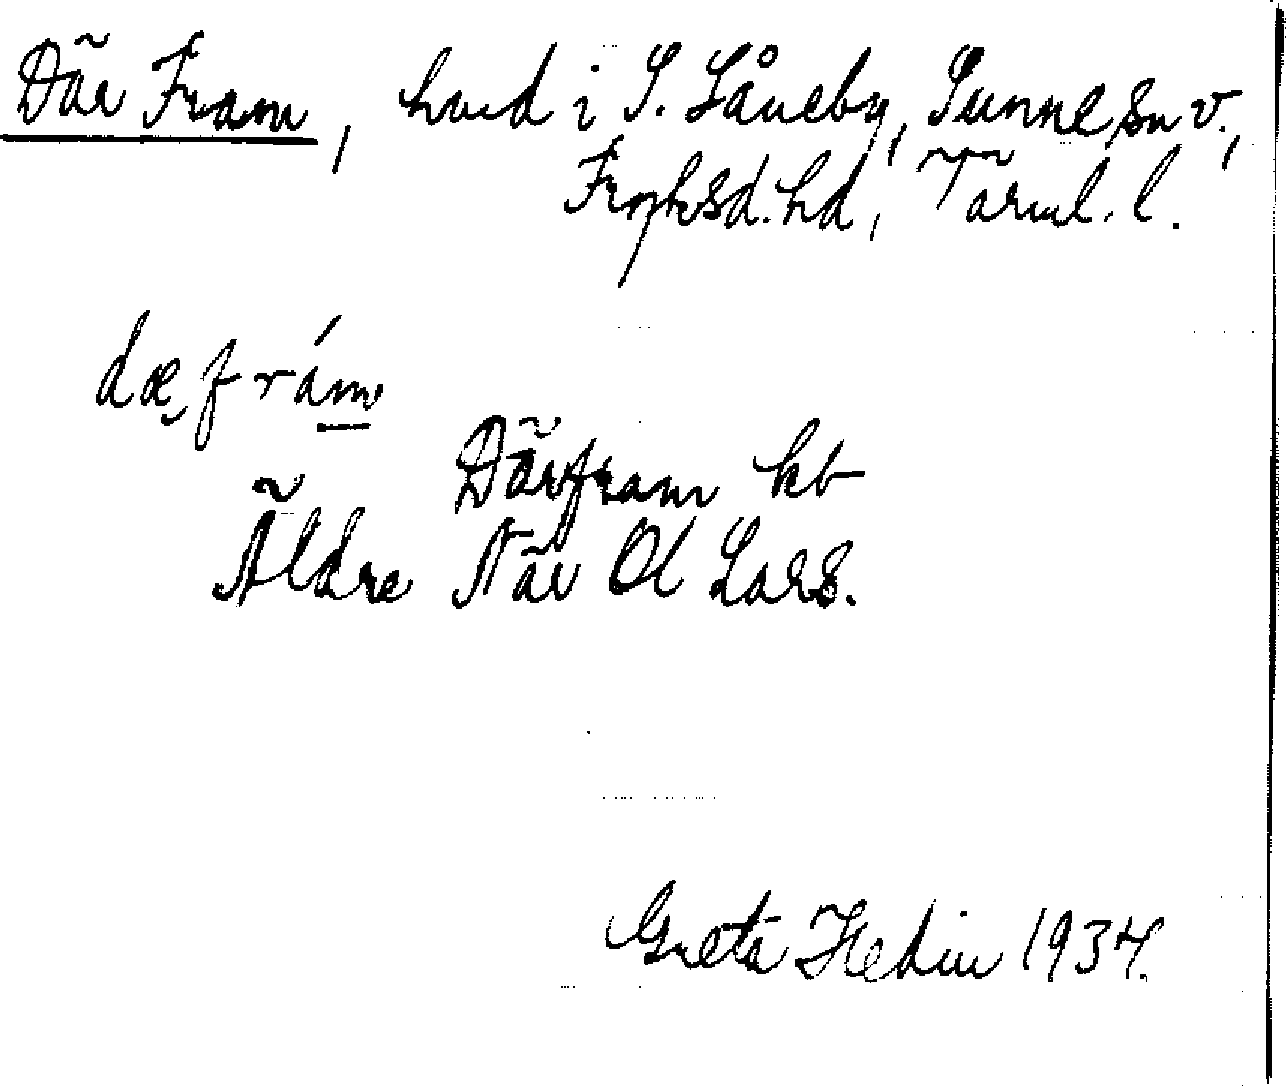 Där Fram, hmd i S. Låneby, Sunne sn v.,
Fryksd. hd, Värml. l.
dæ̨ frám
Därfram kb
Äldre När Ol Lars.
Greta Hedin 1934.